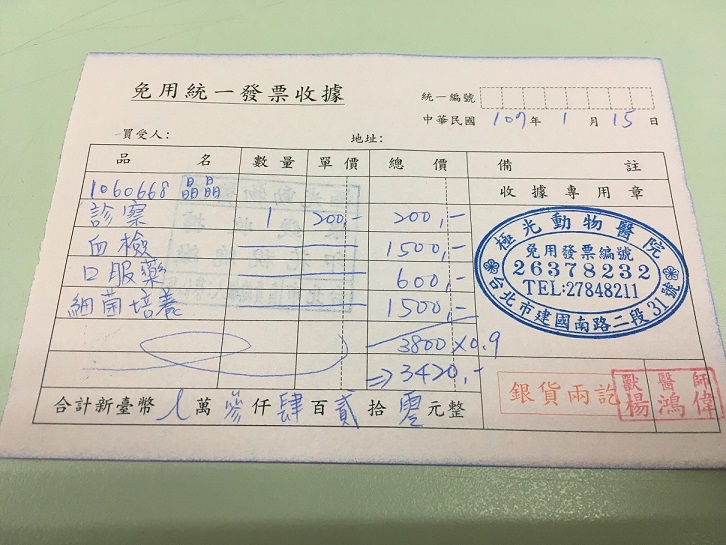 免用統一發票收據
統一編號
中華民國 107年 1月 15日
買受人: 地址:
品名 數量 單價 總價 備註
1060668 晶晶 收據專用章
診察 1 200,- 200,-
血檢 1500,-
口服藥 600,-
細菌培養 1500,-
3800×0.9
⇒3420,-
合計新臺幣 萬 參仟肆百貳拾零元整
極光動物醫院
免用發票編號
26378232
TEL:27848211
台北市建國南路二段31號
銀貨兩訖
獸醫師
楊鴻偉